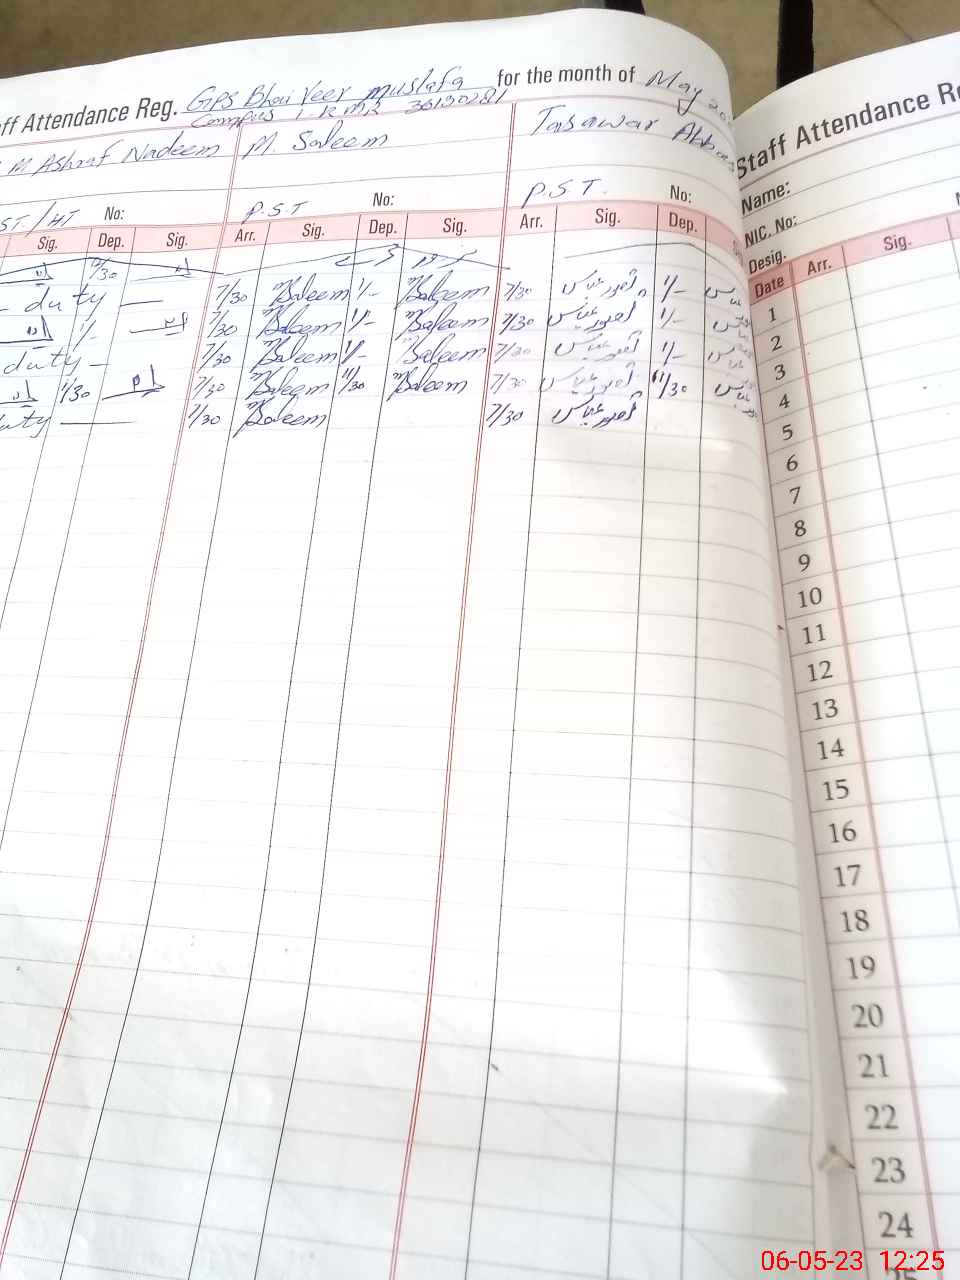 ff Attendance Reg. GPS Bhai Veer mustafa for the month of May 20
Campus 1-RMR 36130281
M Ashraf Nadeem M. Saleem Tasawar Abbas
ST/HT No: P.S.T No: P.S.T. No:
Sig. Dep. Sig. Arr. Sig. Dep. Sig. Arr. Sig. Dep.
/30
duty 7/30 Saleem 1/- Saleem 7/30 تصور عباس 1/-
1/- 7/30 Saleem 1/- Saleem 7/30 تصور عباس 1/-
duty 7/30 Saleem 1/- Saleem 7/30 تصور عباس 1/-
1/30 7/30 Saleem 11/30 Saleem 7/30 تصور عباس 11/30
uty 7/30 Saleem 7/30 تصور عباس
Staff Attendance Re
Name:
NIC. No:
Desig.
Date Arr. Sig.
1
2
3
4
5
6
7
8
9
10
11
12
13
14
15
16
17
18
19
20
21
22
23
24
25
06-05-23 12:25